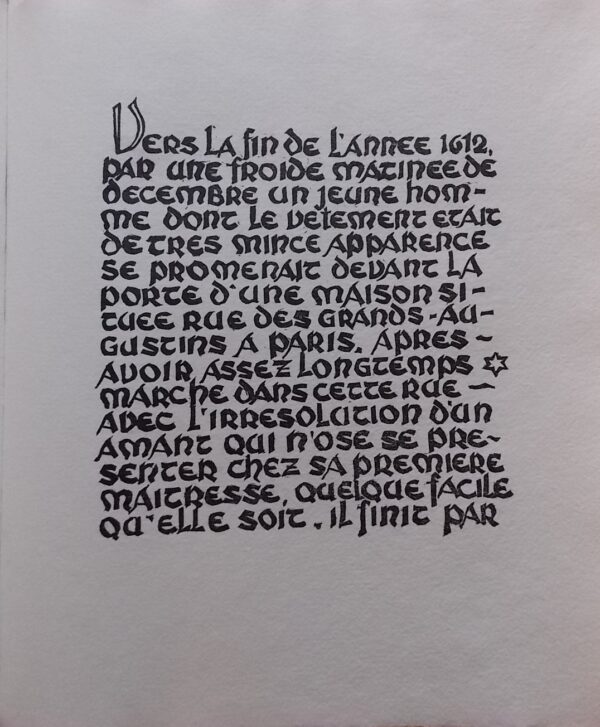 Vers la fin de l'annee 1612,
par une froide matinee de
decembre un jeune hom-
me dont le vetement etait
de tres mince apparence
se promenait devant la
porte d'une maison si-
tuee rue des Grands-Au-
gustins a Paris. Apres-
avoir assez longtemps ✡
marche dans cette rue —
avec l'irresolution d'un
amant qui n'ose se pre-
senter chez sa premiere
maitresse, quelque facile
qu'elle soit, il finit par